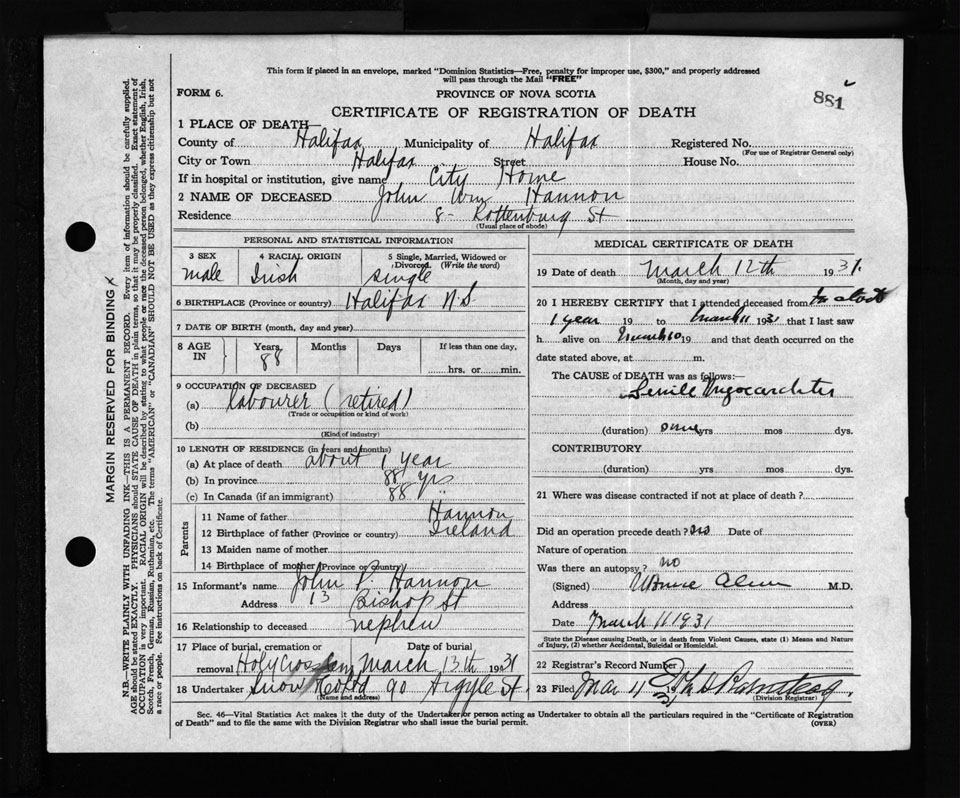 This form if placed in an envelope, marked "Dominion Statistics—Free, penalty for improper use, $300," and properly addressed
will pass through the Mail "FREE"
881
FORM 6.
PROVINCE OF NOVA SCOTIA
CERTIFICATE OF REGISTRATION OF DEATH
1 PLACE OF DEATH—
County of Halifax Municipality of Halifax Registered No.
(For use of Registrar General only)
City or Town Halifax Street House No.
If in hospital or institution, give name City Home
2 NAME OF DECEASED John Wm Hannon
Residence 8- Rottenburg St
(Usual place of abode)
PERSONAL AND STATISTICAL INFORMATION
3 SEX 4 RACIAL ORIGIN 5 Single, Married, Widowed or Divorced (Write the word)
male Irish single
6 BIRTHPLACE (Province or country) Halifax N.S
7 DATE OF BIRTH (month, day and year)
8 AGE IN Years Months Days If less than one day,
88 hrs. or min.
9 OCCUPATION OF DECEASED
(a) labourer (retired)
(Trade or occupation or kind of work)
(b)
(Kind of industry)
10 LENGTH OF RESIDENCE (in years and months)
(a) At place of death about 1 year
(b) In province 88 yrs
(c) In Canada (if an immigrant) 88 "
Parents
11 Name of father Hannon
12 Birthplace of father (Province or country) Ireland
13 Maiden name of mother
14 Birthplace of mother (Province or country)
15 Informant's name John P. Hannon
Address 13 Bishop St
16 Relationship to deceased nephew
17 Place of burial, cremation or Date of burial
removal Holy Cross March 13th 1931
18 Undertaker Snow 90 Argyle St.
(Name and address)
MEDICAL CERTIFICATE OF DEATH
19 Date of death March 12th 1931.
(Month, day and year)
20 I HEREBY CERTIFY that I attended deceased from
1 year 19 to March 11 1931 that I last saw
h alive on March 10 19 and that death occurred on the
date stated above, at m.
The CAUSE of DEATH was as follows:—
Senile Myocarditis
(duration) some yrs mos dys.
CONTRIBUTORY
(duration) yrs mos dys.
21 Where was disease contracted if not at place of death?
Did an operation precede death? no Date of
Nature of operation
Was there an autopsy? no
(Signed) M.D.
Address
Date March 11 1931
State the Disease causing Death, or in death from Violent Causes, state (1) Means and Nature
of Injury, (2) whether Accidental, Suicidal or Homicidal.
22 Registrar's Record Number
23 Filed Mar 11 19
(Division Registrar)
Sec. 46—Vital Statistics Act makes it the duty of the Undertaker or person acting as Undertaker to obtain all the particulars required in the "Certificate of Registration
of Death" and to file the same with the Division Registrar who shall issue the burial permit. (OVER)
MARGIN RESERVED FOR BINDING
N.B.—WRITE PLAINLY WITH UNFADING INK—THIS IS A PERMANENT RECORD. Every item of information should be carefully supplied.
AGE should be stated EXACTLY. PHYSICIANS should STATE CAUSE OF DEATH in plain terms, so that it may be properly classified. Exact statement of
OCCUPATION is very important. RACIAL ORIGIN will be described by stating to what people or race the deceased person belonged, whether English, Irish,
Scotch, French, German, Russian, Ruthenian, etc. The terms "AMERICAN" or "CANADIAN" SHOULD NOT BE USED as they express citizenship but not
a race or people. See instructions on back of Certificate.